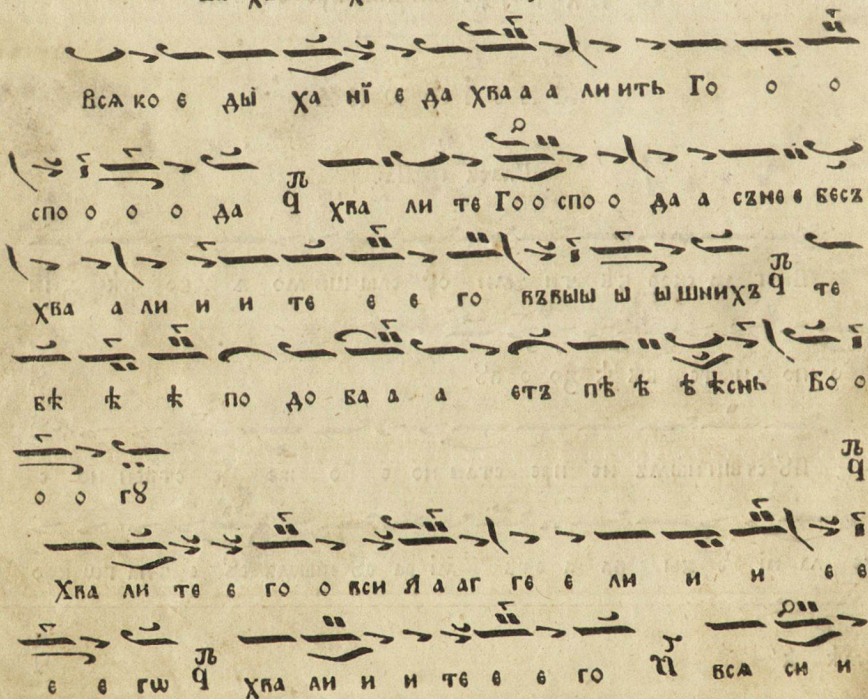 Всѧ ко е ды ха нї е да хва а а ли ить Го о о
спо о о о да хва ли те Го о спо о да а съне е бесъ
хва а ли и и те е е го въвыы ы ышнихъ те
бѣ ѣ ѣ по до ва а а етъ пѣ ѣ ѣ ѣснь Бо о
о о гꙋ
Хва ли те е го о вси Я а аг ге е ли и и е е
е е гѡ хва ли и и те е е го всѧ си и